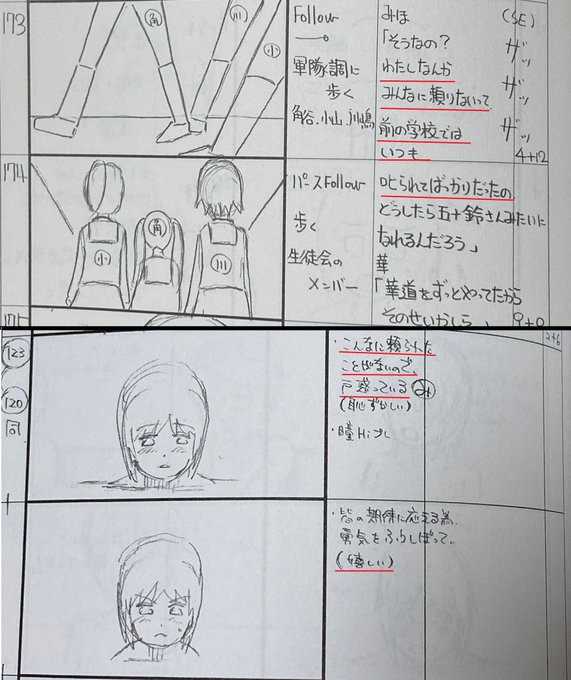 173
角
川
小
Follow
軍隊調に
歩く
角谷、小山、川嶋
みほ
「そうなの?
わたしなんか
みんなに頼りないって
前の学校では
いつも
(SE)
ザッ
ザッ
ザッ
4+12
174
小
角
川
パースFollow
歩く
生徒会の
メンバー
叱られてばっかりだったの
どうしたら五十鈴さんみたいに
なれるんだろう」
華
「華道をずっとやってたから
そのせいかしら
9+0
175
123
120
同
・こんなに頼られた
ことがないので、
戸惑っている み
(恥ずかしい)
・瞳Hiブレ
2+6
・皆の期待に応える為、
勇気をふりしぼって。
(嬉しい)